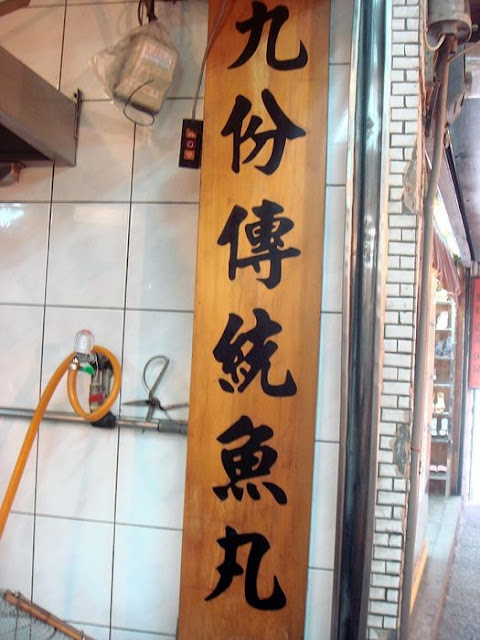 九份傳統魚丸